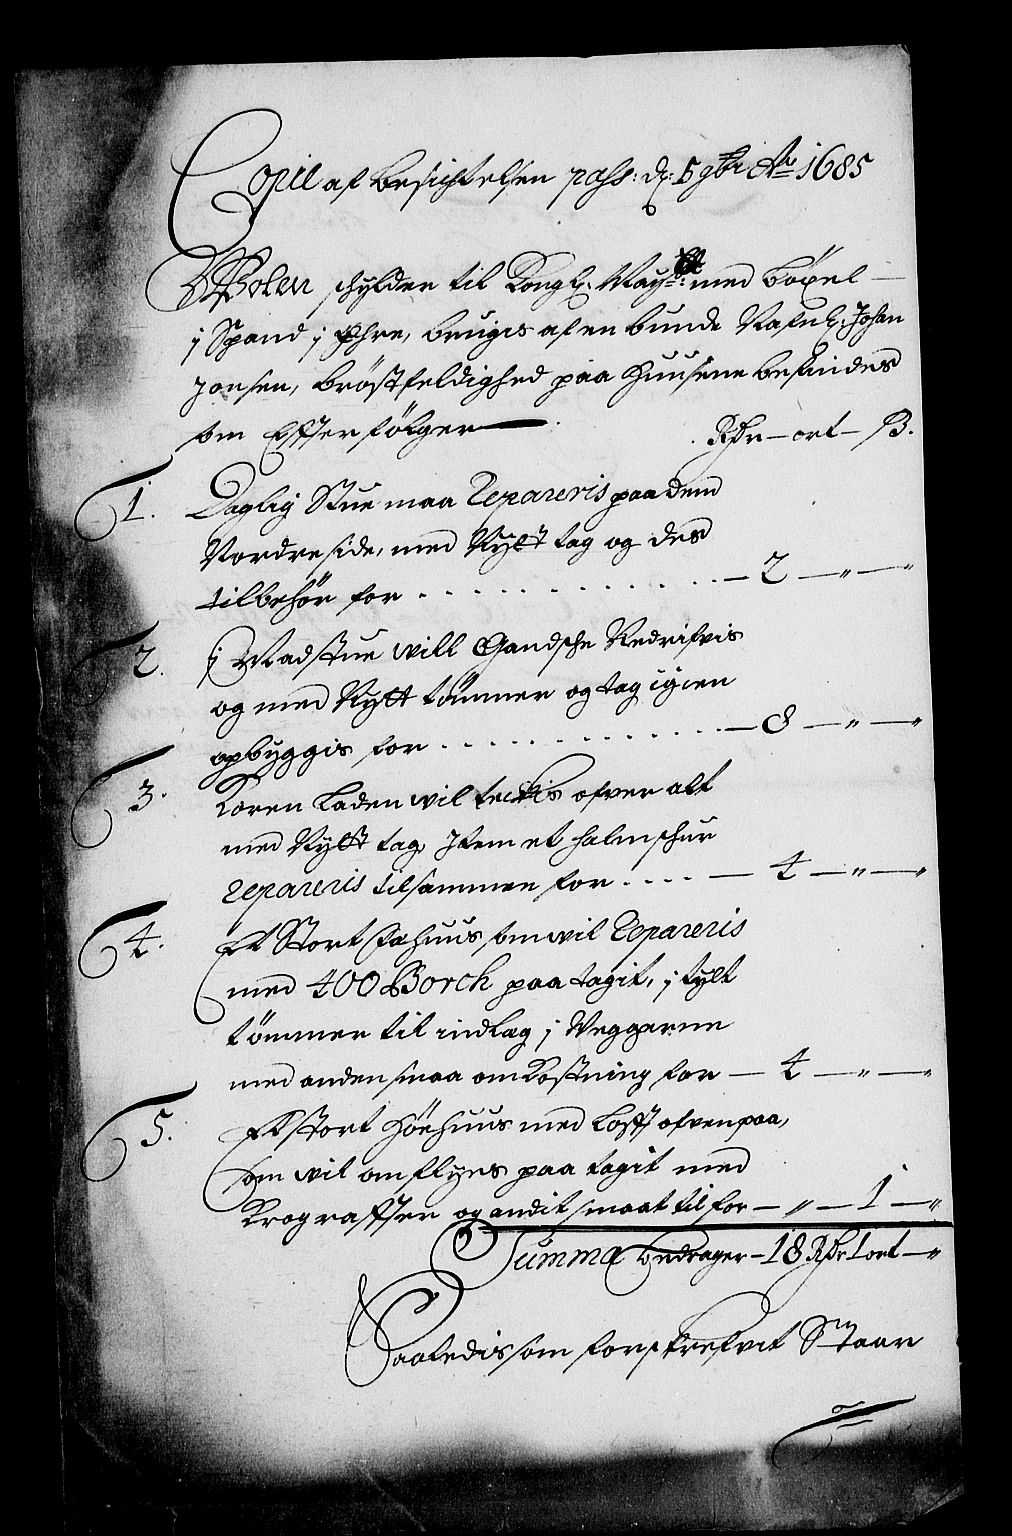 Copie af besichtelsen pass: d: 5 9bri Ao 1685
Wolen schylder til Kongl: May:tt med böxel
j Spand j Øhre, bruges af en bunde Nafnl: Johan
Jonsen, bröstfeldighed paa huusene befindes
som Effterfölger
Rdr — ort — ß.
1. Daglig Stue maa Repareris paa dend
Nordre side, med Nyt tag og des
tilbehör for . . . . . . . . . . . . — 2 — " — "
2. j Madstue will Gandsche Nedrifvis
og med Nytt tömmer og tag igien
opbyggis for . . . . . . . . . . . . — 8 — " — "
3. Koren Laden wil teckis ofver alt
med Nytt tag, Item et halmschur
repareris tilsammen for . . . . — 4 — " — "
4. Et Stort fæhuus som wil Repareris
med 400 Borck paa tagit, j tylt
tömmer til indlag j Veggerne
med anden smaa omkostning for — 4 — " — "
5. Et stort höehuus med Lofft ofvenpaa,
som wil omflyes paa tagit med
Krograffter og andit smaat til for — " — 1 — "
Summa bedrager — 18 Rdr 1 ort — "
Saaledis som forschrefvit Staar